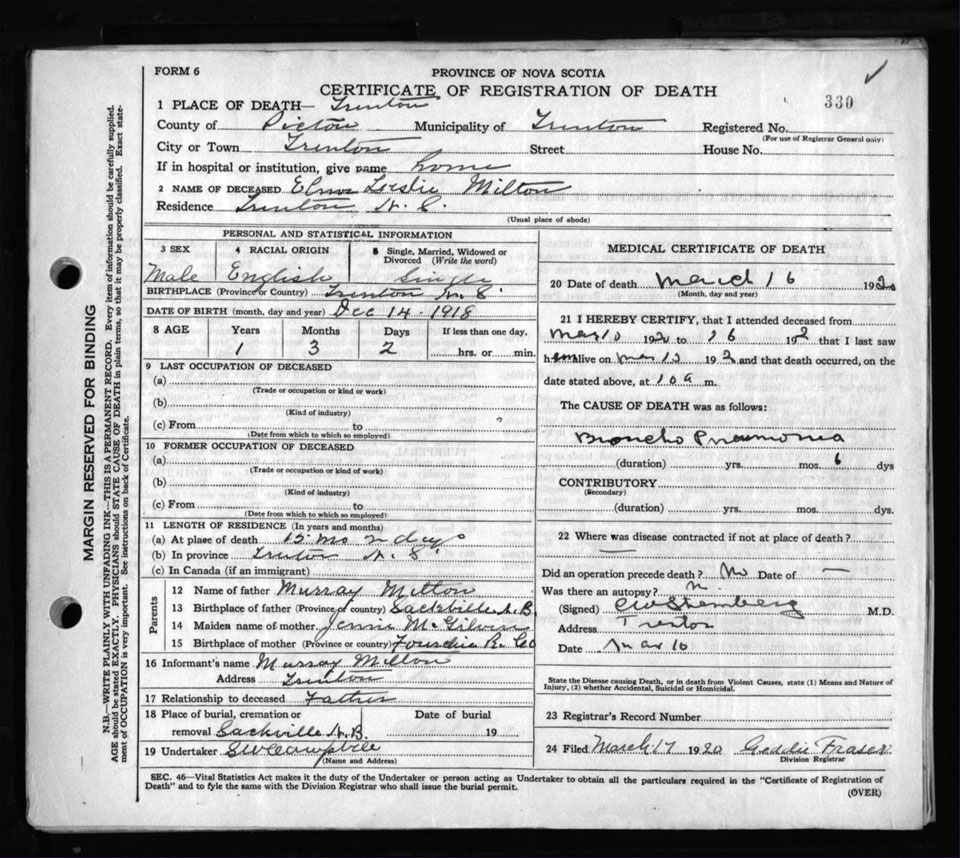 FORM 6
PROVINCE OF NOVA SCOTIA
CERTIFICATE OF REGISTRATION OF DEATH
330
1 PLACE OF DEATH— Trenton
County of Pictou Municipality of Trenton Registered No.
(For use of Registrar General only)
City or Town Trenton Street House No.
If in hospital or institution, give name home
2 NAME OF DECEASED Leslie Milton
Residence Trenton N. S.
(Usual place of abode)
PERSONAL AND STATISTICAL INFORMATION
3 SEX 4 RACIAL ORIGIN 5 Single, Married, Widowed or Divorced (Write the word)
Male English Single
BIRTHPLACE (Province or Country) Trenton N. S.
DATE OF BIRTH (month, day and year) Dec 14. 1918
8 AGE Years Months Days If less than one day,
1 3 2 hrs. or min.
9 LAST OCCUPATION OF DECEASED
(a)
(Trade or occupation or kind or work)
(b)
(Kind of industry)
(c) From to
(Date from which to which so employed)
10 FORMER OCCUPATION OF DECEASED
(a)
(Trade or occupation or kind of work)
(b)
(Kind of industry)
(c) From to
(Date from which to which so employed)
11 LENGTH OF RESIDENCE (In years and months)
(a) At place of death 15 mo 2 days
(b) In province Trenton N. S.
(c) In Canada (if an immigrant)
Parents
12 Name of father Murray Milton
13 Birthplace of father (Province or country) Sackville N. B.
14 Maiden name of mother Jennie
15 Birthplace of mother (Province or country) Fourchie R. Co
16 Informant's name Murray Milton
Address Trenton
17 Relationship to deceased Father
18 Place of burial, cremation or Date of burial
removal Sackville N. B. 19
19 Undertaker
(Name and Address)
MEDICAL CERTIFICATE OF DEATH
20 Date of death March 16 1920
(Month, day and year)
21 I HEREBY CERTIFY, that I attended deceased from
Mar 10 1920 to 16 192 that I last saw
him alive on Mar 192 and that death occurred, on the
date stated above, at 10 a m.
The CAUSE OF DEATH was as follows:
Broncho Pneumonia
(duration) yrs. mos. 6 dys
CONTRIBUTORY
(Secondary)
(duration) yrs. mos. dys.
22 Where was disease contracted if not at place of death?
—
Did an operation precede death? No Date of —
Was there an autopsy? N.
(Signed) M.D.
Address Trenton
Date Mar 16
State the Disease causing Death, or in death from Violent Causes, state (1) Means and Nature of
Injury, (2) whether Accidental, Suicidal or Homicidal.
23 Registrar's Record Number
24 Filed March 17 1920 Fraser
Division Registrar
SEC. 46—Vital Statistics Act makes it the duty of the Undertaker or person acting as Undertaker to obtain all the particulars required in the "Certificate of Registration of
Death" and to fyle the same with the Division Registrar who shall issue the burial permit.
(OVER)
MARGIN RESERVED FOR BINDING
N.B.—WRITE PLAINLY WITH UNFADING INK—THIS IS A PERMANENT RECORD. Every item of information should be carefully supplied.
AGE should be stated EXACTLY. PHYSICIANS should STATE CAUSE OF DEATH in plain terms, so that it may be properly classified. Exact state-
ment of OCCUPATION is very important. See instructions on back of Certificate.